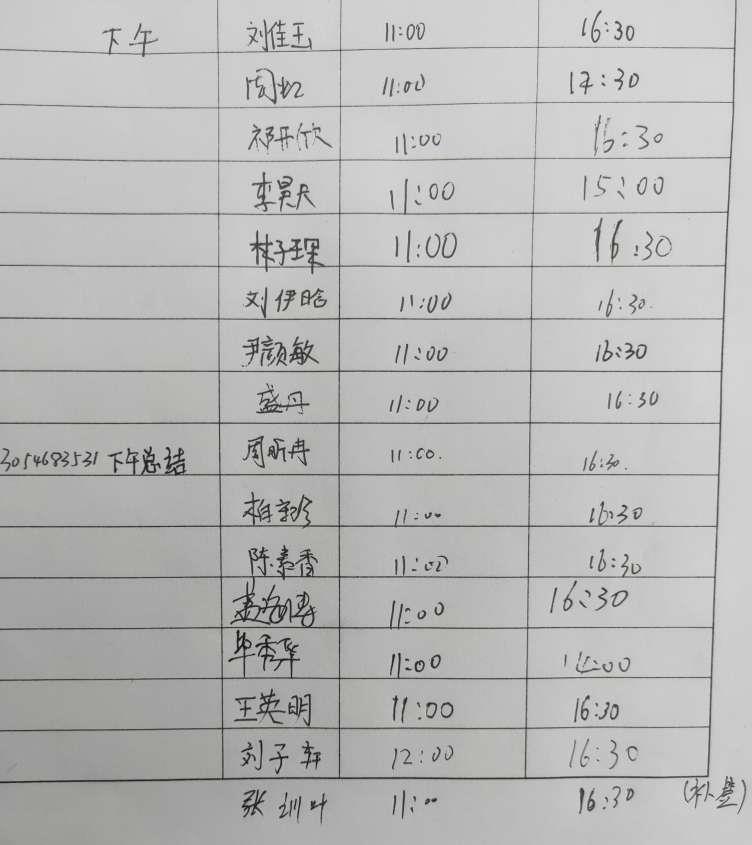 下午 刘佳玉 11:00 16:30
周虹 11:00 17:30
祁开欣 11:00 16:30
李昊天 11:00 15:00
林子琛 11:00 16:30
刘伊晗 11:00 16:30.
尹颜敏 11:00 16:30
盛丹 11:00 16:30
3054683531 下午总结 周昕冉 11:00. 16:30.
11:00 16:30
陈素香 11:00 16:30
11:00 16:30
毕秀华 11:00
王英明 11:00 16:30
刘子轩 12:00 16:30
张训叶 11:00 16:30 (补签)